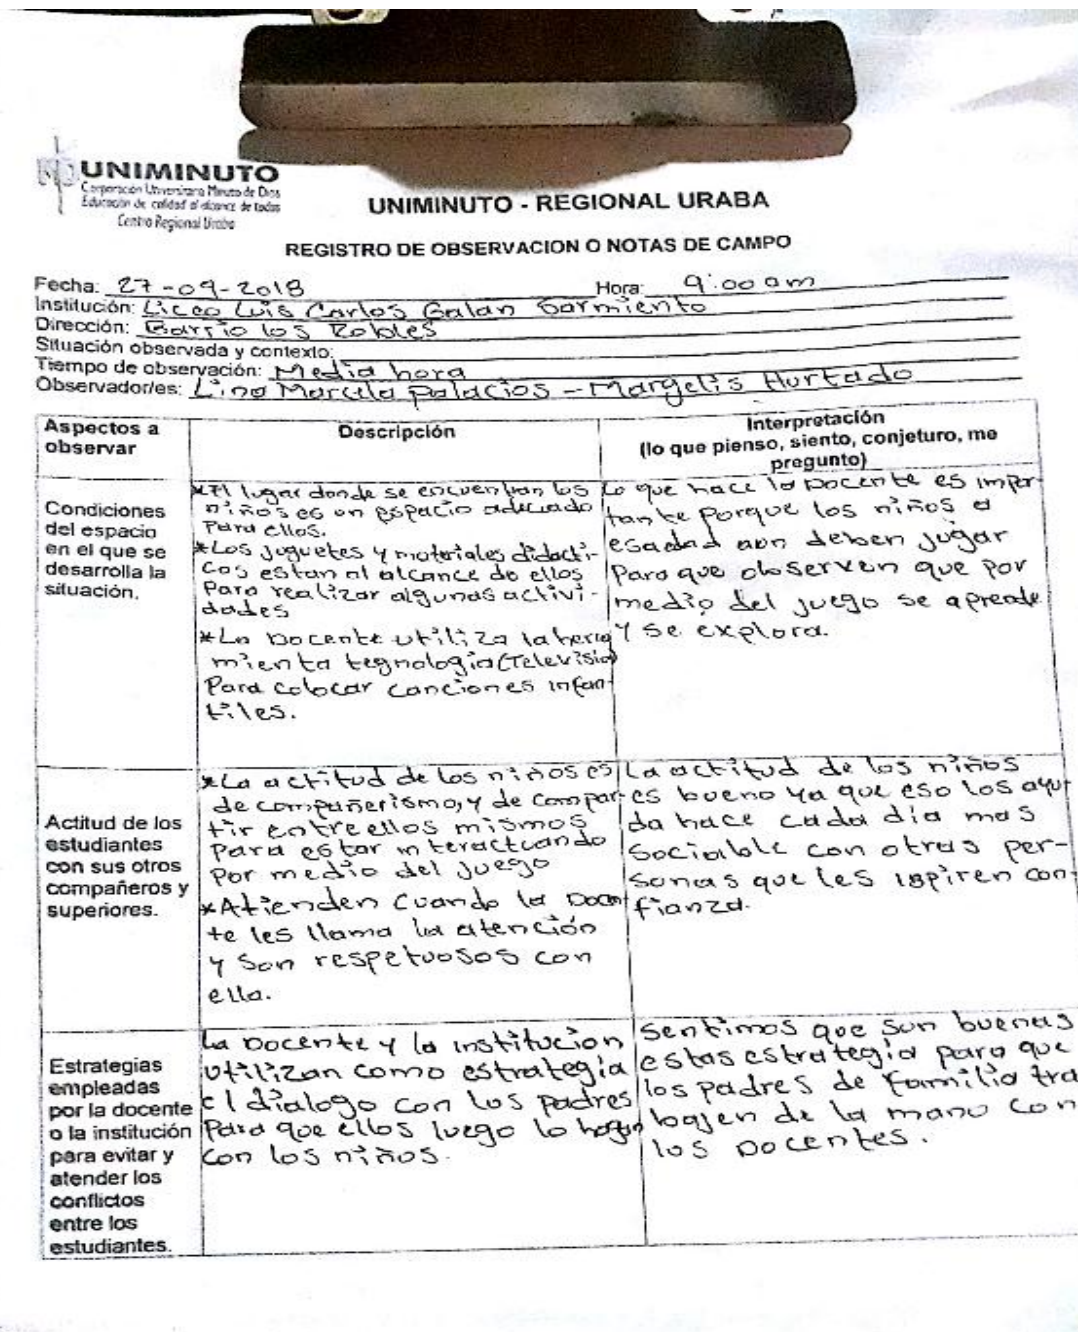 UNIMINUTO
Corporación Universitaria Minuto de Dios
Educación de calidad al alcance de todos
Centro Regional Urabá
UNIMINUTO - REGIONAL URABA
REGISTRO DE OBSERVACION O NOTAS DE CAMPO
Fecha: 27-09-2018 Hora: 9:00 am
Institución: Liceo Luis Carlos Galan Sarmiento
Dirección: Barrio los Robles
Situación observada y contexto:
Tiempo de observación: Media hora
Observador/es: Lina Marcela Palacios - Margelis Hurtado
Aspectos a
observar
Descripción
Interpretación
(lo que pienso, siento, conjeturo, me
pregunto)
Condiciones
del espacio
en el que se
desarrolla la
situación.
*El lugar donde se encuentran los
niños es un espacio adecuado
Para ellos.
*Los juguetes y materiales didacti-
cos estan al alcance de ellos
Para realizar algunas activi-
dades
*La Docente utiliza la herra
mienta tegnologia (Television)
Para colocar canciones infan
tiles.
Lo que hace la Docente es impor-
tante porque los niños a
esa edad aun deben jugar
Para que observen que por
medio del juego se aprende
y se explora.
Actitud de los
estudiantes
con sus otros
compañeros y
superiores.
*La actitud de los niños es
de compañerismo, y de compar
tir entre ellos mismos
Para estar interactuando
Por medio del juego
*Atienden cuando la Docen
te les llama la atención
y Son respetuosos con
ella.
La actitud de los niños
es bueno ya que eso los ayu
da hace cada día mas
Sociable con otras per-
sonas que les ispiren con-
fianza.
Estrategias
empleadas
por la docente
o la institución
para evitar y
atender los
conflictos
entre los
estudiantes.
La Docente y la institución
utilizan como estrategia
el dialogo con los padres
Para que ellos luego lo hagan
con los niños.
Sentimos que son buenas
estas estrategia para que
los padres de familia tra
bajen de la mano con
los Docentes.